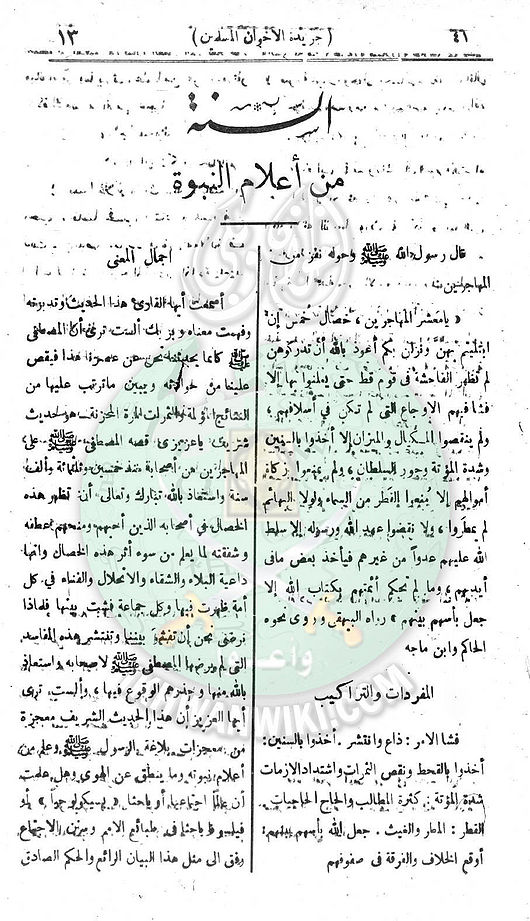 ١٣
( جريدة الأخوان المسلمين )
٤٦
السنة
من أعلام النبوة
قال رسول الله ﷺ وحوله نفر من
المهاجرين
« يا معشر المهاجرين ، خصال خمس إن
ابتليتم بهن ونزلن بكم أعوذ بالله أن تدركوهن
لم تظهر الفاحشة في قوم قط حتى يعلنوا بها إلا
فشا فيهم الأوجاع التي لم تكن في أسلافهم ،
ولم ينقصوا المكيال والميزان إلا أخذوا بالسنين
وشدة المؤنة وجور السلطان ، ولم يمنعوا زكاة
أموالهم إلا منعوا القطر من السماء ولولا البهائم
لم يمطروا ، ولا نقضوا عهد الله ورسوله إلا سلط
الله عليهم عدوا من غيرهم فيأخذ بعض ما في
أيديهم ، وما لم تحكم أئمتهم بكتاب الله إلا
جعل بأسهم بينهم » رواه البيهقي وروى نحوه
الحاكم وابن ماجه
المفردات والتراكيب
فشا الأمر : ذاع وانتشر . أخذوا بالسنين :
أخذوا بالقحط ونقص الثمرات واشتداد الأزمات
شدة المؤنة : كثرة المطالب والحاح الحاجيات .
القطر : المطر والغيث . جعل الله بأسهم بينهم :
أوقع الخلاف والفرقة في صفوفهم
اجمال المعنى
أسمعت أيها القارئ هذا الحديث وتدبرته
وفهمت معناه وبربك ألست ترى أن المصطفى
ﷺ كأنما يحدثنا نحن عن عصرنا هذا فيقص
علينا من حوادثه ويبين ماترتب عليها من
النتائج المؤلمة والثمرات المرة المحزنة، هو حديث
شريف ياعزيزى قصه المصطفى ﷺ على
المهاجرين من أصحابه منذ خمسين وثلثمائة وألف
سنة واستعاذ بالله تبارك وتعالى أن تظهر هذه
الخصال في أصحابه الذين أحبهم ومنحهم عطفه
وشفقته لما يعلم من سوء أثر هذه الخصال وانها
داعية البلاء والشقاء والانحلال والفناء في كل
أمة ظهرت فيها وكل جماعة فشت بينها فلماذا
نرضى نحن إن تفشوا بيننا وتنتشر هذه المفاسد
التي لم يرضها المصطفى ﷺ لاصحابه واستعاذ
بالله منها وحذرهم الوقوع فيها ، وألست ترى
أيها العزيز أن هذا الحديث الشريف معجزة
من معجزات بلاغة الرسول ﷺ وعلم من
أعلام نبوته وما ينطق عن الهوى وهل علمت
أن عالما اجتماعيا أو باحثا « بسيكولوجيا » أو
فيلسوفا باحثا في طبائع الامم وسنن الاجتماع
وفق الى مثل هذا البيان الرائع والحكم الصادق
IKHWANWIKI.COM